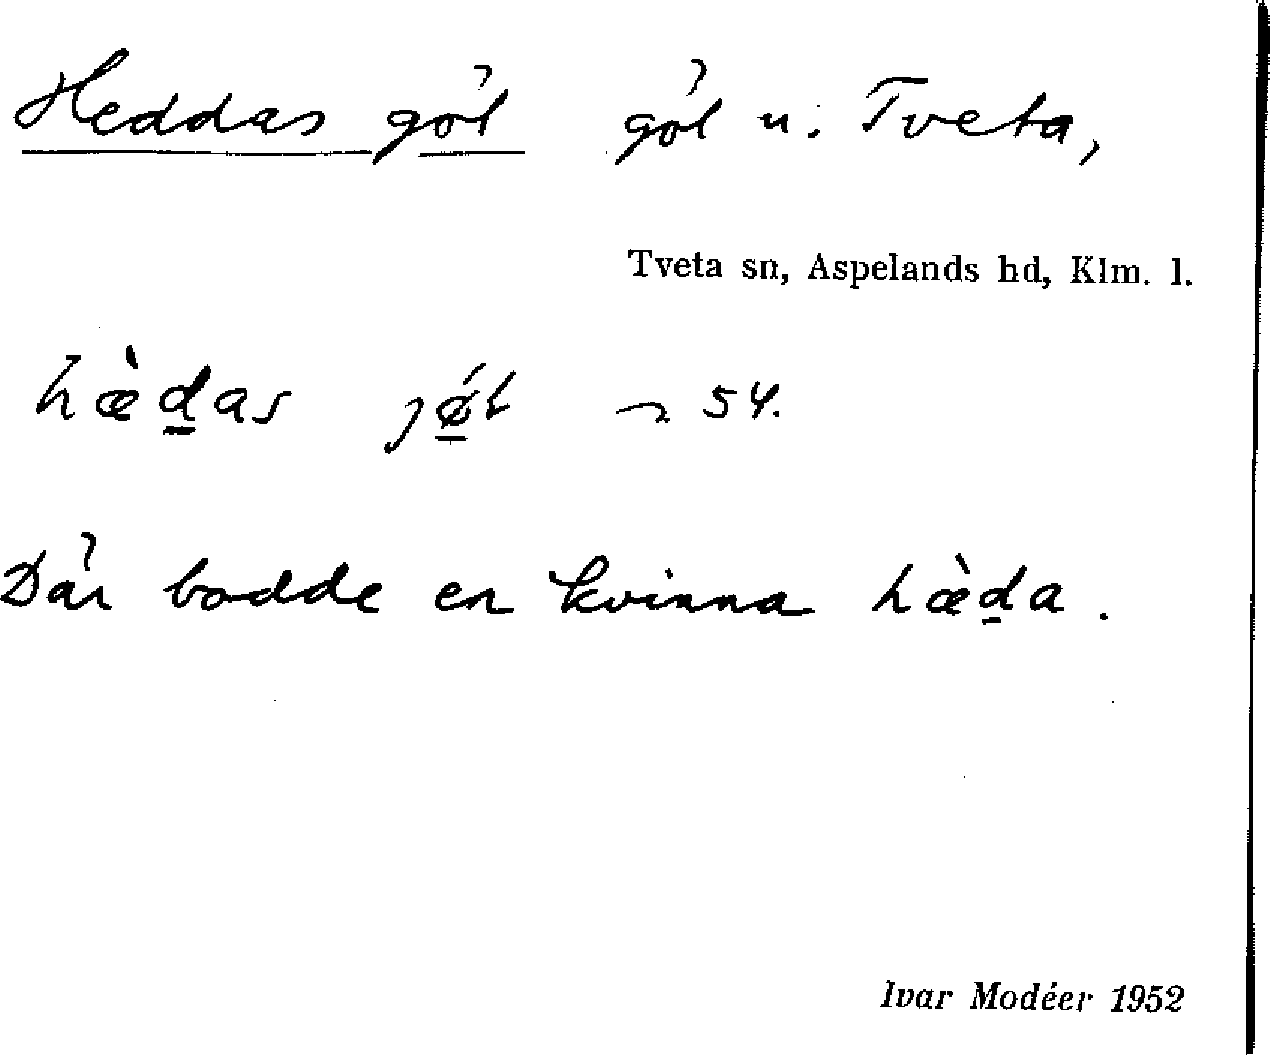 Heddas göl göl u. Tveta,
Tveta sn, Aspelands hd, Klm. l.
hæ̀d̲as jǿ̲l 54.
Där bodde en kvinna hæ̀d̲a.
Ivar Modéer 1952